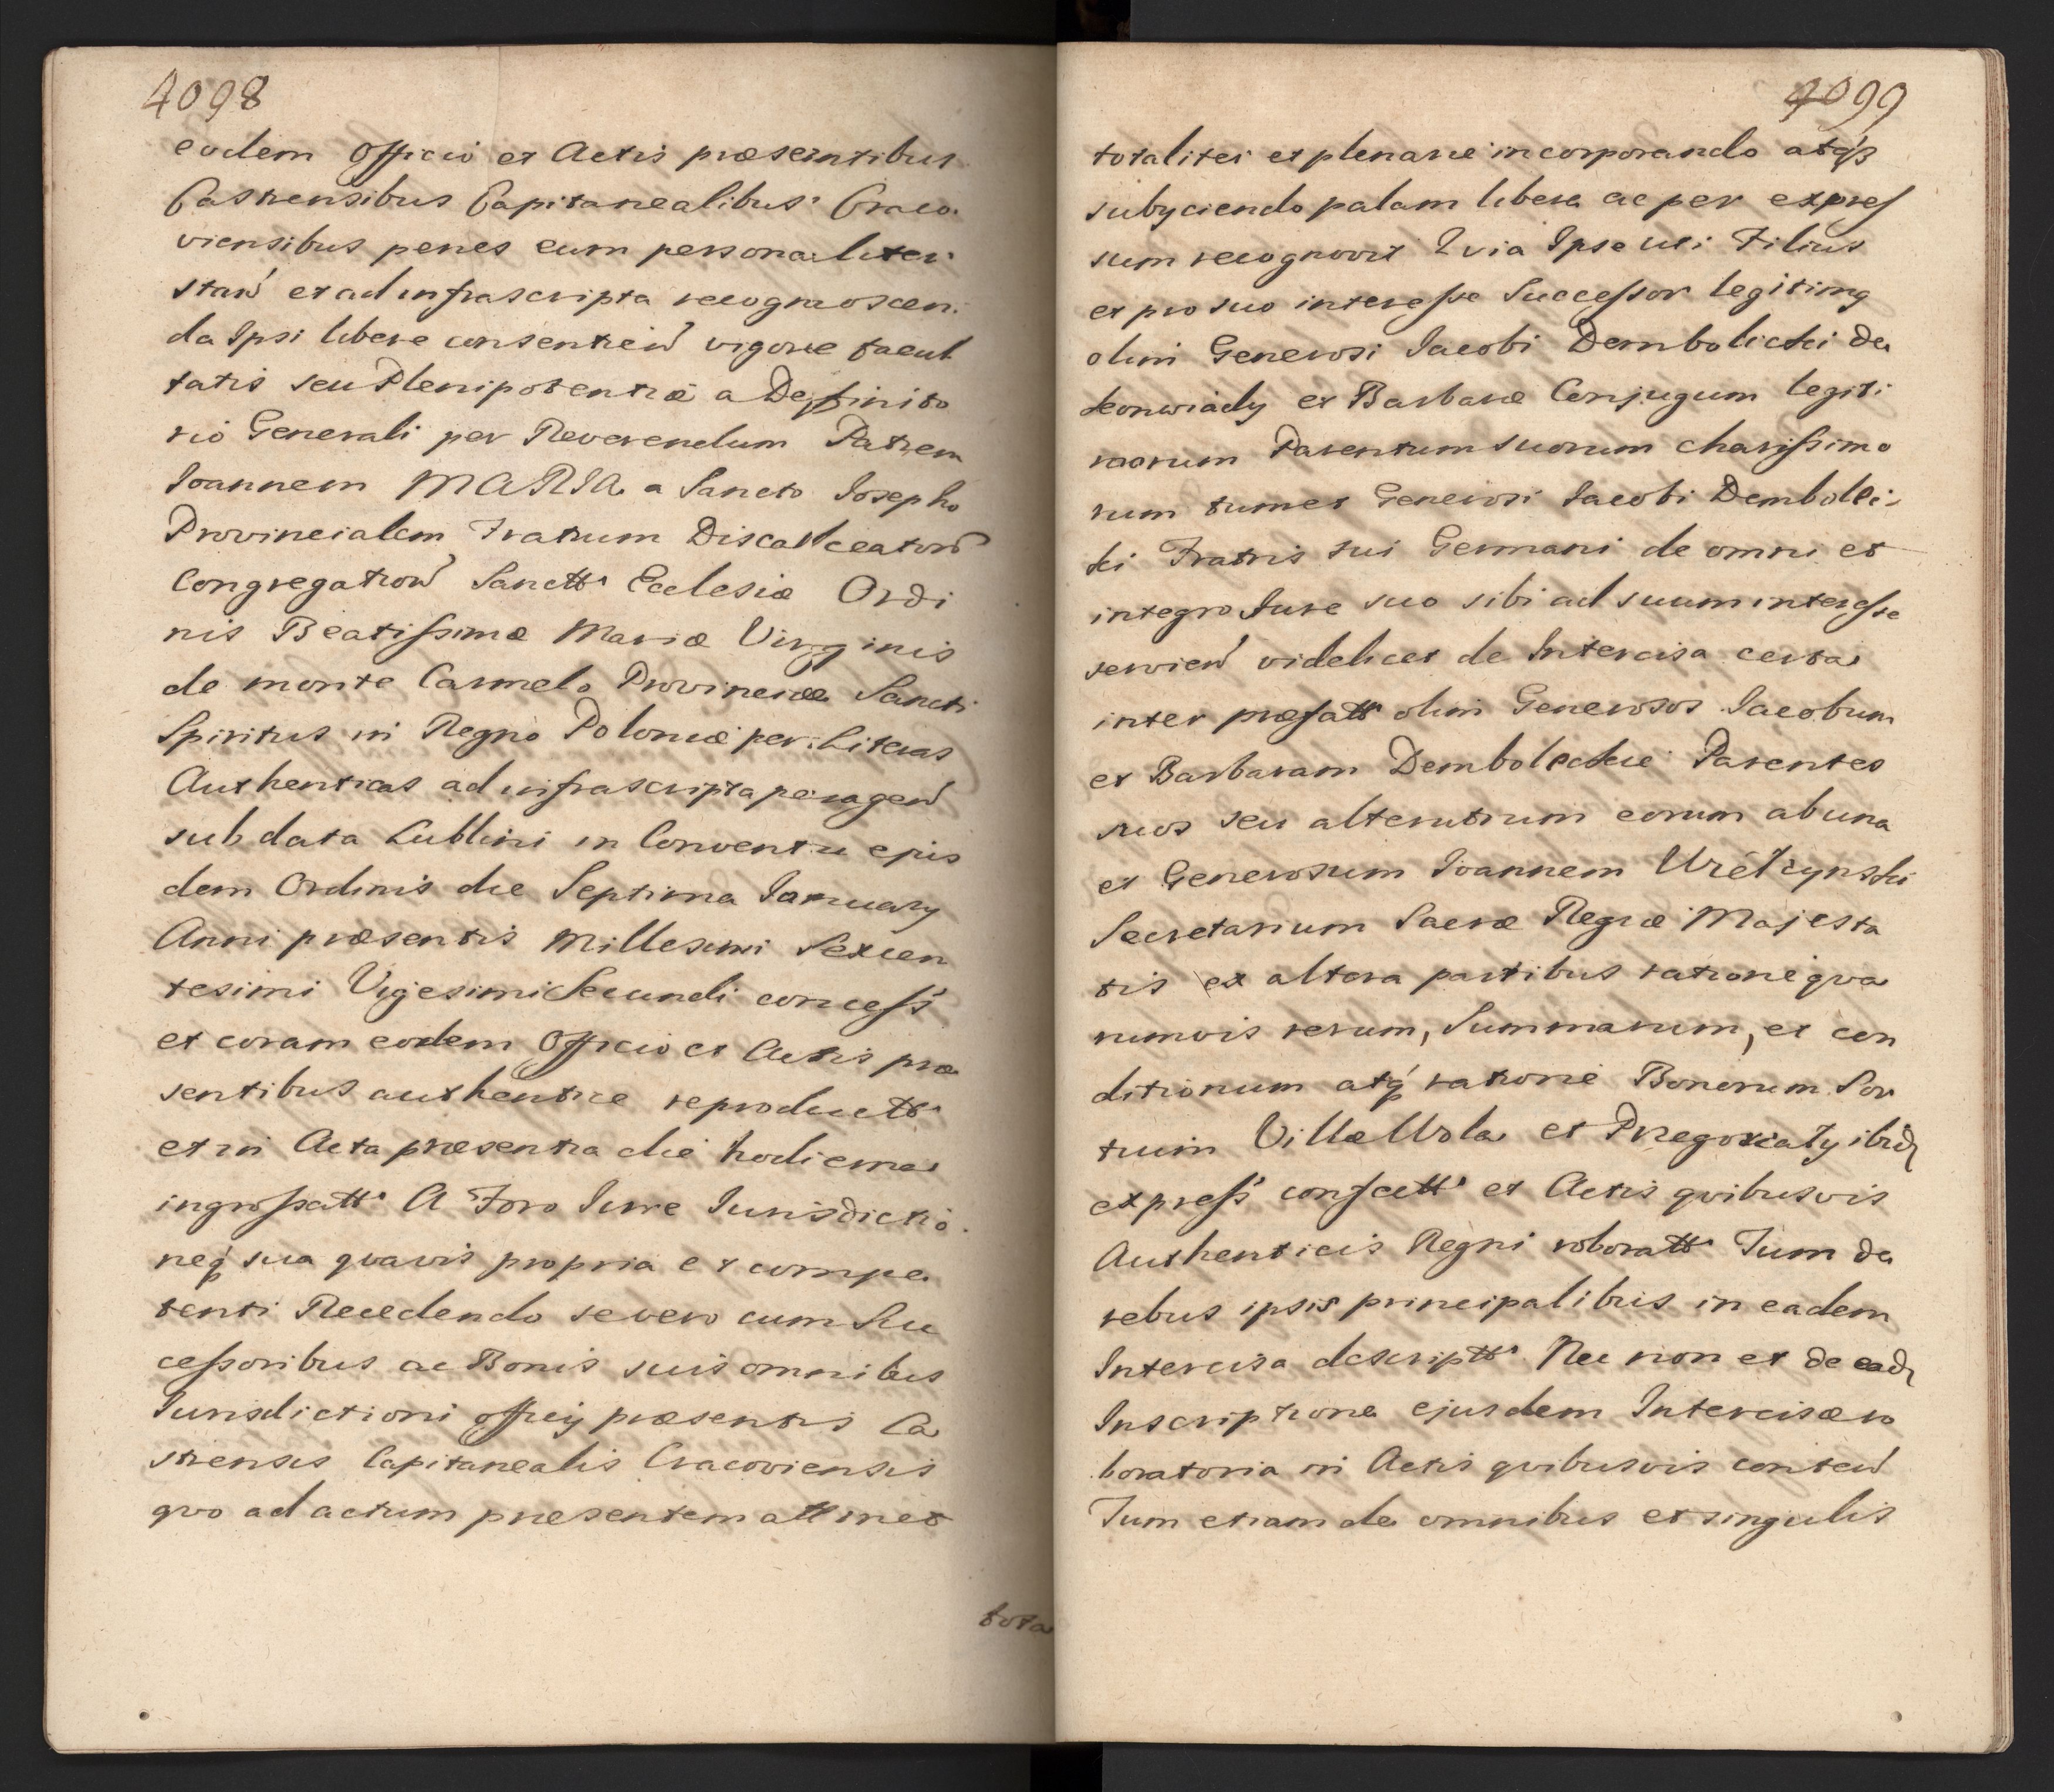 4098
eodem Officio et Actis præsentibus
Castrensibus Capitanealibus Craco
viensibus penes eum personaliter
stań et ad infrascripta recognoscen
da Ipsi libere consentień vigore facul
tatis seu Plenipotentiæ a Deffinito
rio Generali per Reverendum Patrem
Joannem MARIA a Sancto Josepho
Provincialem Fratrum Discalceatorů
Congregationů Sanctt Ecclesiæ Ordi
nis Beatissimæ Mariæ Virginis
de monte Carmelo Provinciæ Sancti
Spiritus in Regno Poloniæ per Literas
Authenticas ad infrascripta peragenď
sub data Lublini in Conventu ejus
dem Ordinis die Septima January
Anni præsentis Millesimi Sexcen
tesimi Vigesimi Secundi concess
et coram eodem Officio et Actis præ
sentibus authentice reproductt
et in Acta præsentia die hodierna
ingrossatt A Foro Jure Jurisdictio
neq́ sua quavis propria et compe
tenti Recedendo se vero cum Suc
cessoribus ac Bonis suis omnibus
Jurisdictioni officij præsentis Ca
strensis Capitanealis Cracoviensis
quo ad actum præsentem attinet
tota
4099
totaliter et plenarie incorporando atq́ꝫ
subyciendo palam libere ac per expres
sum recognovit Qvia Ipse uti Filius
et pro suo interesse Successor legitimꝰ
olim Generosi Jacobi Dembolicki de
Konwiady et Barbaræ Conjugum legiti
morum Parentum suorum charissimo
rum tum et Generosi Jacobi Dembolec
ki Fratris sui Germani de omni et
integro Jure suo sibi ad suum interesse
servień videlicet de Intercisa certa
inter præfatt olim Generosos Jacobum
et Barbaram Demboleckie Parentes
suos seu alterutrum eorum ab una
et Generosum Joannem
Secretarium Sacræ Regiæ Majesta
tis ex altera partibus ratione qva
rumvis rerum, Summarum, et con
ditionum atq́ ratione Bonorum Sor
tium Villæ Wola et Przegoniaty ibiđ
express confectt et Actis qvibusvis
Authenticis Regni roboratt Tum de
rebus ipsis principalibus in eadem
Intercisa descriptt Nec non et de eađ
Inscriptione ejusdem Intercisæ ro
boratoria in Actis qvibusvis conteń
Tum etiam de omnibus et singulis